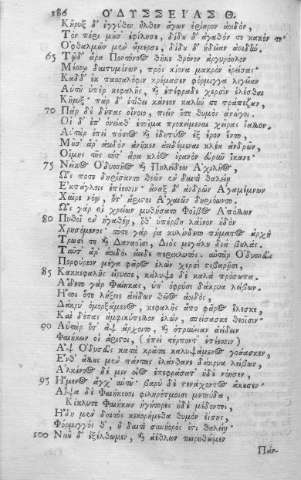 186 ὈΔΥΣΣΕΊΑΣ Θ.
Κῆρυξ δ' ἐγγύθεν ἦλθεν ἄγων ἐρίηρον ἀοιδόν,
Τὸν πέρι μοῦσ' ἐφίλησε, δίδου δ' ἀγαθόν τε κακόν τε·
Ὀφθαλμῶν μὲν ἄμερσε, δίδου δ' ἡδεῖαν ἀοιδήν.
65 Τῷ δ' ἄρα Ποντόνοος θῆκε θρόνον ἀργυρόηλον
Μέσσῳ δαιτυμόνων, πρὸς κίονα μακρὸν ἐρείσας·
Καδδ' ἐκ πασσαλόφι κρέμασεν φόρμιγγα λίγειαν
Αὐτοῦ ὑπὲρ κεφαλῆς, καὶ ἐπέφραδε χερσὶν ἑλέσθαι
Κῆρυξ· πὰρ δ' ἐτίθει κάνεον καλήν τε τράπεζαν,
70 Πὰρ δὲ δέπας οἴνοιο, πιεῖν ὅτε θυμὸς ἀνώγοι.
Οἱ δ' ἐπ' ὀνείαθ' ἑτοῖμα προκείμενα χεῖρας ἴαλλον.
Αὐτὰρ ἐπεὶ πόσιος καὶ ἐδητύος ἐξ ἔρον ἕντο,
Μοῦσ' ἄρ' ἀοιδὸν ἀνῆκεν ἀειδέμεναι κλέα ἀνδρῶν,
Οἴμης τῆς τότ' ἄρα κλέος οὐρανὸν εὐρὺν ἵκανε·
75 Νεῖκος Ὀδυσσῆος καὶ Πηλείδεω Ἀχιλῆος
Ὥς ποτε δηρίσαντο θεῶν ἐν δαιτὶ θαλείῃ
Ἐκπάγλοις ἐπέεσσιν· ἄναξ δ' ἀνδρῶν Ἀγαμέμνων
Χαῖρε νόῳ, ὅτ' ἄριστοι Ἀχαιῶν δηριόωντο.
Ὣς γάρ οἱ χρείων μυθήσατο Φοῖβος Ἀπόλλων
80 Πυθοῖ ἐν ἠγαθέῃ, ὅθ' ὑπέρβη λάϊνον οὐδὸν
Χρησόμενος· τότε γάρ ῥα κυλίνδετο πήματος ἀρχὴ
Τρωσί τε καὶ Δαναοῖσι, Διὸς μεγάλου διὰ βουλάς.
Ταῦτ' ἄρ' ἀοιδὸς ἄειδε περικλυτός. αὐτὰρ Ὀδυσσεὺς
Πορφύρεον μέγα φᾶρος ἑλὼν χερσὶ στιβαρῇσι,
85 Κακκεφαλῆς εἴρυσσε, κάλυψε δὲ καλὰ πρόσωπα.
Αἴδετο γὰρ Φαίηκας, ὑπ' ὀφρύσι δάκρυα λείβων.
Ἤτοι ὅτε λήξειεν ἀείδων θεῖος ἀοιδός,
Δάκρυ' ὀμορξάμενος, κεφαλῆς ἄπο φᾶρος ἕλεσκε,
Καὶ δέπας ἀμφικύπελλον ἑλών, σπείσασκε θεοῖσιν·
90 Αὐτὰρ ὅτ' ἂψ ἄρχοιτο, καὶ ὀτρύνειαν ἀείδειν
Φαιήκων οἱ ἄριστοι, (ἐπεὶ τέρποντ' ἐπέεσσιν)
Ἂψ Ὀδυσεὺς κατὰ κρᾶτα καλυψάμενος γοάασκεν,
Ἔνθ' ἄλλους μὲν πάντας ἐλάνθανε δάκρυα λείβων,
Ἀλκίνοος δέ μιν οἶος ἐπεφράσατ' ἠδ' ἐνόησεν,
95 Ἥμενος ἄγχ' αὐτοῦ· βαρὺ δὲ στενάχοντος ἄκουσεν·
Αἶψα δὲ Φαιήκεσσι φιληρέτμοισι μετηύδα,
Κέκλυτε Φαιήκων ἡγήτορες ἠδὲ μέδοντες,
Ἤδη μὲν δαιτὸς κεκορήμεθα θυμὸν ἐΐσης,
Φόρμιγγός θ', ἣ δαιτὶ συνήορός ἐστι θαλείῃ·
100 Νῦν δ' ἐξέλθωμεν, καὶ ἀέθλων πειρηθῶμεν
Πάν-